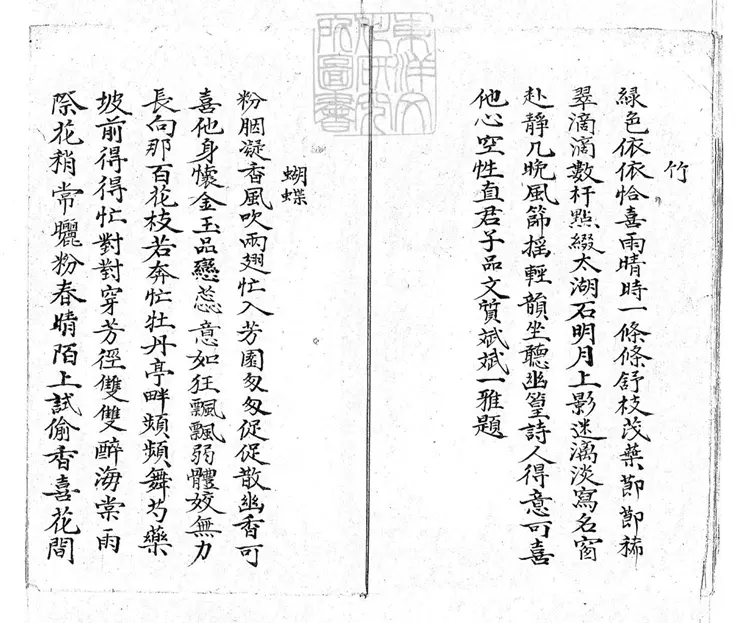 竹
綠色依依恰喜雨晴時一條條舒枝茂葉節節稀
翠滴滴數杆點綴太湖石明月上影迷漓淡寫名窗
赴靜几晚風篩搖輕韻坐聽幽篁詩人得意可喜
他心空性直君子品文質斌斌一雅題
蝴蝶
粉胭凝香風吹兩翅忙入芳園匆匆促促散幽香可
喜他身懷金玉品戀蕊意如狂飄飄弱體姣無力
長向那百花枝若奔忙牡丹亭畔頻頻舞芍藥
坡前得得忙對對穿芳徑雙雙醉海棠雨
際花稍常曬粉春晴陌上試偷香喜花間
東洋文
化研究
所圖書